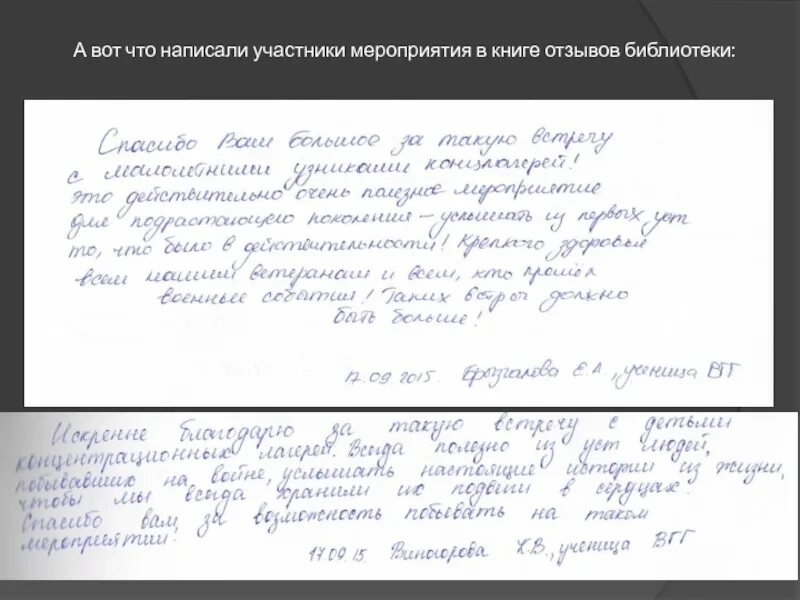 А вот что написали участники мероприятия в книге отзывов библиотеки:
Спасибо Вам большое за такую встречу
с малолетними узниками концлагерей!
Это действительно очень полезное мероприятие
для подрастающего поколения – услышать из первых уст
то, что было в действительности! Крепкого здоровья
всем нашим ветеранам и всем, кто прошёл
военные события! Таких встреч должно
быть больше!
17.09.2015. Брызгалова Е.А., ученица ВГГ
Искренне благодарю за такую встречу с детьми
концентрационных лагерей. Всегда полезно из уст людей,
побывавших на войне, услышать настоящие истории из жизни,
чтобы мы всегда хранили их подвиги в сердцах.
Спасибо вам за возможность побывать на таком
мероприятии!
17.09.15. К.В., ученица ВГГ